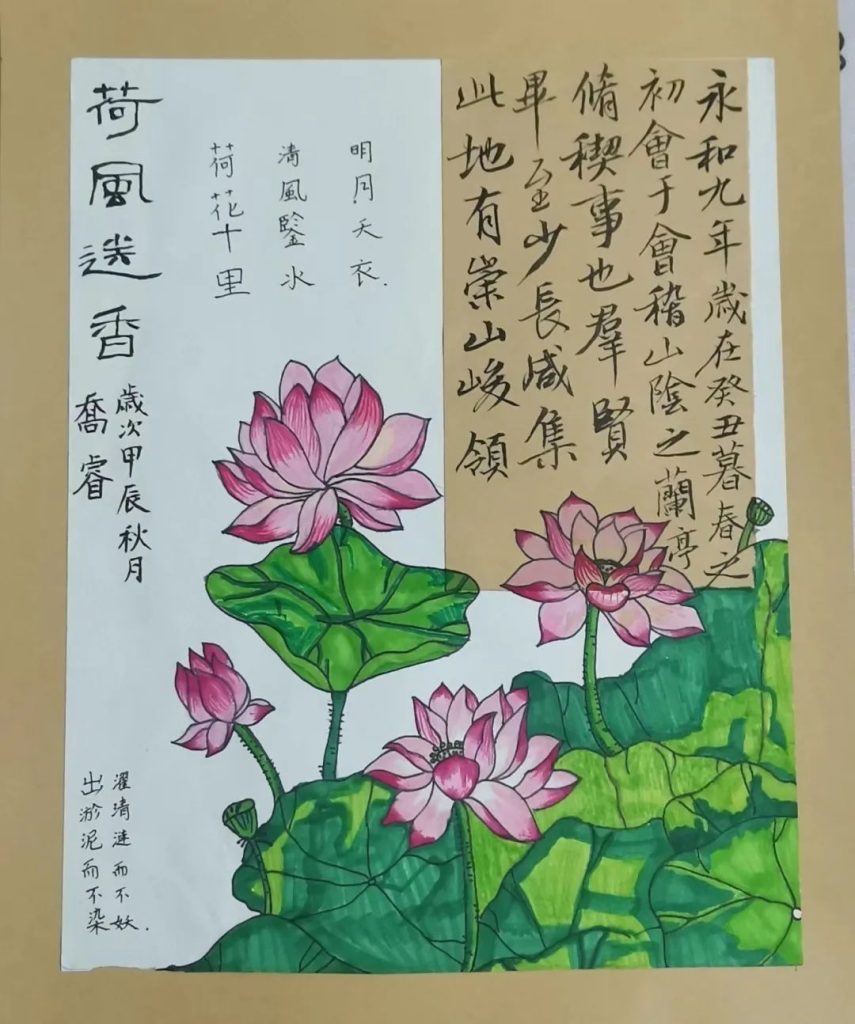 永和九年歲在癸丑暮春之
初會于會稽山陰之蘭亭
脩稧事也羣賢
畢至少長咸集
此地有崇山峻領
明月天衣.
清風鑒水
荷花十里
荷風送香
歲次甲辰秋月
喬睿
濯清涟而不妖.
出淤泥而不染